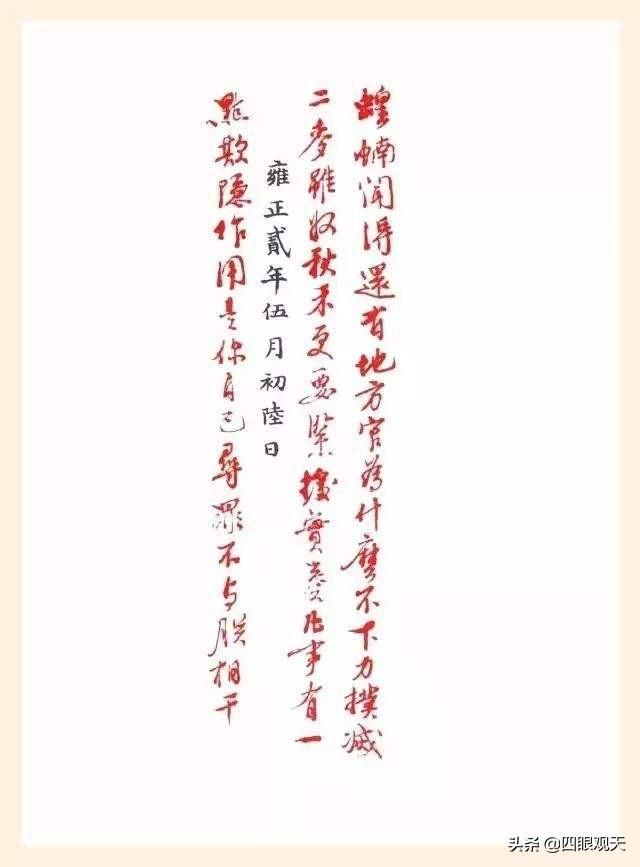 蝗蝻聞得還有地方官為什麼不下力撲滅
二麥雖收秋禾更要緊據實奏凡事有一
雍正貳年伍月初陸日
點欺隱作用是你自己尋罪不与朕相干
头条 @四眼观天